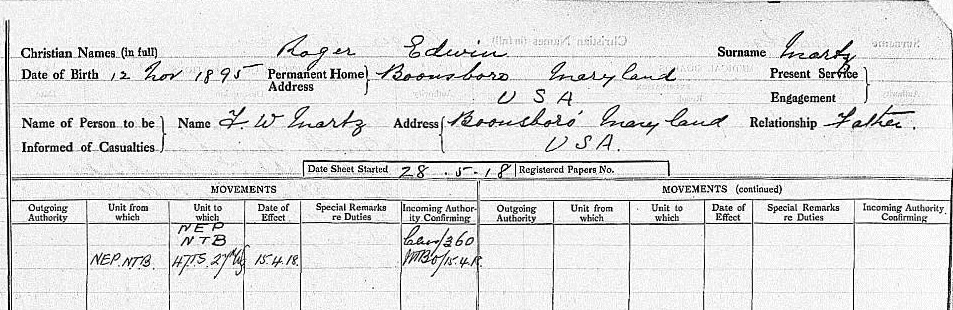 Christian Names (in full) Roger Edwin Surname Martz
Date of Birth 12 Nov 1895 Permanent Home Address Boonsboro Maryland Present Service
USA Engagement
Name of Person to be Informed of Casualties Name F. W Martz Address Boonsboro Maryland Relationship Father.
USA.
Date Sheet Started 28.5.18 Registered Papers No.
MOVEMENTS MOVEMENTS (continued)
Outgoing Authority Unit from which Unit to which Date of Effect Special Remarks re Duties Incoming Authority Confirming Outgoing Authority Unit from which Unit to which Date of Effect Special Remarks re Duties Incoming Authority Confirming
NEP
NTB /360
NEP.NTB. 15.4.18 /15.4.18.